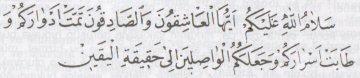 سَلَامُ اللّٰهِ عَلَيْكُمْ اَيُّهَا الْعَاشِقُونَ وَالصَّادِقُونَ تَمَّتْ اَدْوَارُكُمْ وَ
طَابَتْ اَسْرَارُكُمْ وَجَعَلَكُمُ الْوَاصِلِينَ اِلٰى حَقِيقَةِ الْيَقِينِ